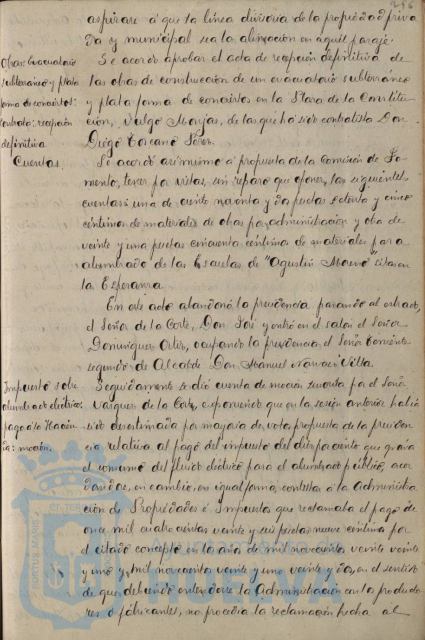 aspirare á que la línea divisoria de la propiedad priva
da y municipal sea la alineación en aquel paraje.
Obras: Evacuatorio
subterráneo y plata
forma de conciertos:
contrato: recepción
definitiva
Se acordó aprobar el acta de recepción definitiva de
las obras de construcción de un evacuatorio subterráneo
y plataforma de conciertos en la Plaza de la Constitu-
ción, vulgo Monjas, de las que ha sido contratista Don
Diego
Cuentas.
Se acordó asimismo á propuesta de la Comisión de Fo-
mento, tener por vistas, sin reparo que oponer, las siguientes
cuentas: una de ciento noventa y dos pesetas setenta y cinco
céntimos de materiales de obras por administración y otra de
veinte y una pesetas cincuenta céntimos de materiales para
alumbrado de las Escuelas de "Agustín Moreno" sitas en
la Esperanza.
En este acto abandonó la presidencia pasando al estrado,
el Señor de la Corte, Don José y entró en el salón el Señor
Domínguez Ortiz, ocupando la presidencia el Señor Teniente
segundo de Alcalde Don Manuel Narváez Villa.
Impuesto sobre
alumbrado eléctrico:
pago á la Hacien
da: moción.
Seguidamente se dió cuenta de moción suscrita por el Señor
Vázquez de la Corte, exponiendo que en la sesión anterior había
sido desestimada por mayoría de votos propuesta de la presiden
cia relativa al pago del impuesto del diez por ciento que grava
el consumo del fluido eléctrico para el alumbrado público, acor
dándose, en cambio, en igual forma, contestar á la Administra
ción de Propiedades é Impuestos que reclamaba el pago de
once mil cuatrocientas veinte y seis pesetas nueve céntimos por
el citado concepto en los años de mil novecientos veinte veinte
y uno y, mil novecientos veinte y uno veinte y dos, en el sentido
de que debiendo entenderse la Administración con los producto
res ó fabricantes, no procedía la reclamación hecha al